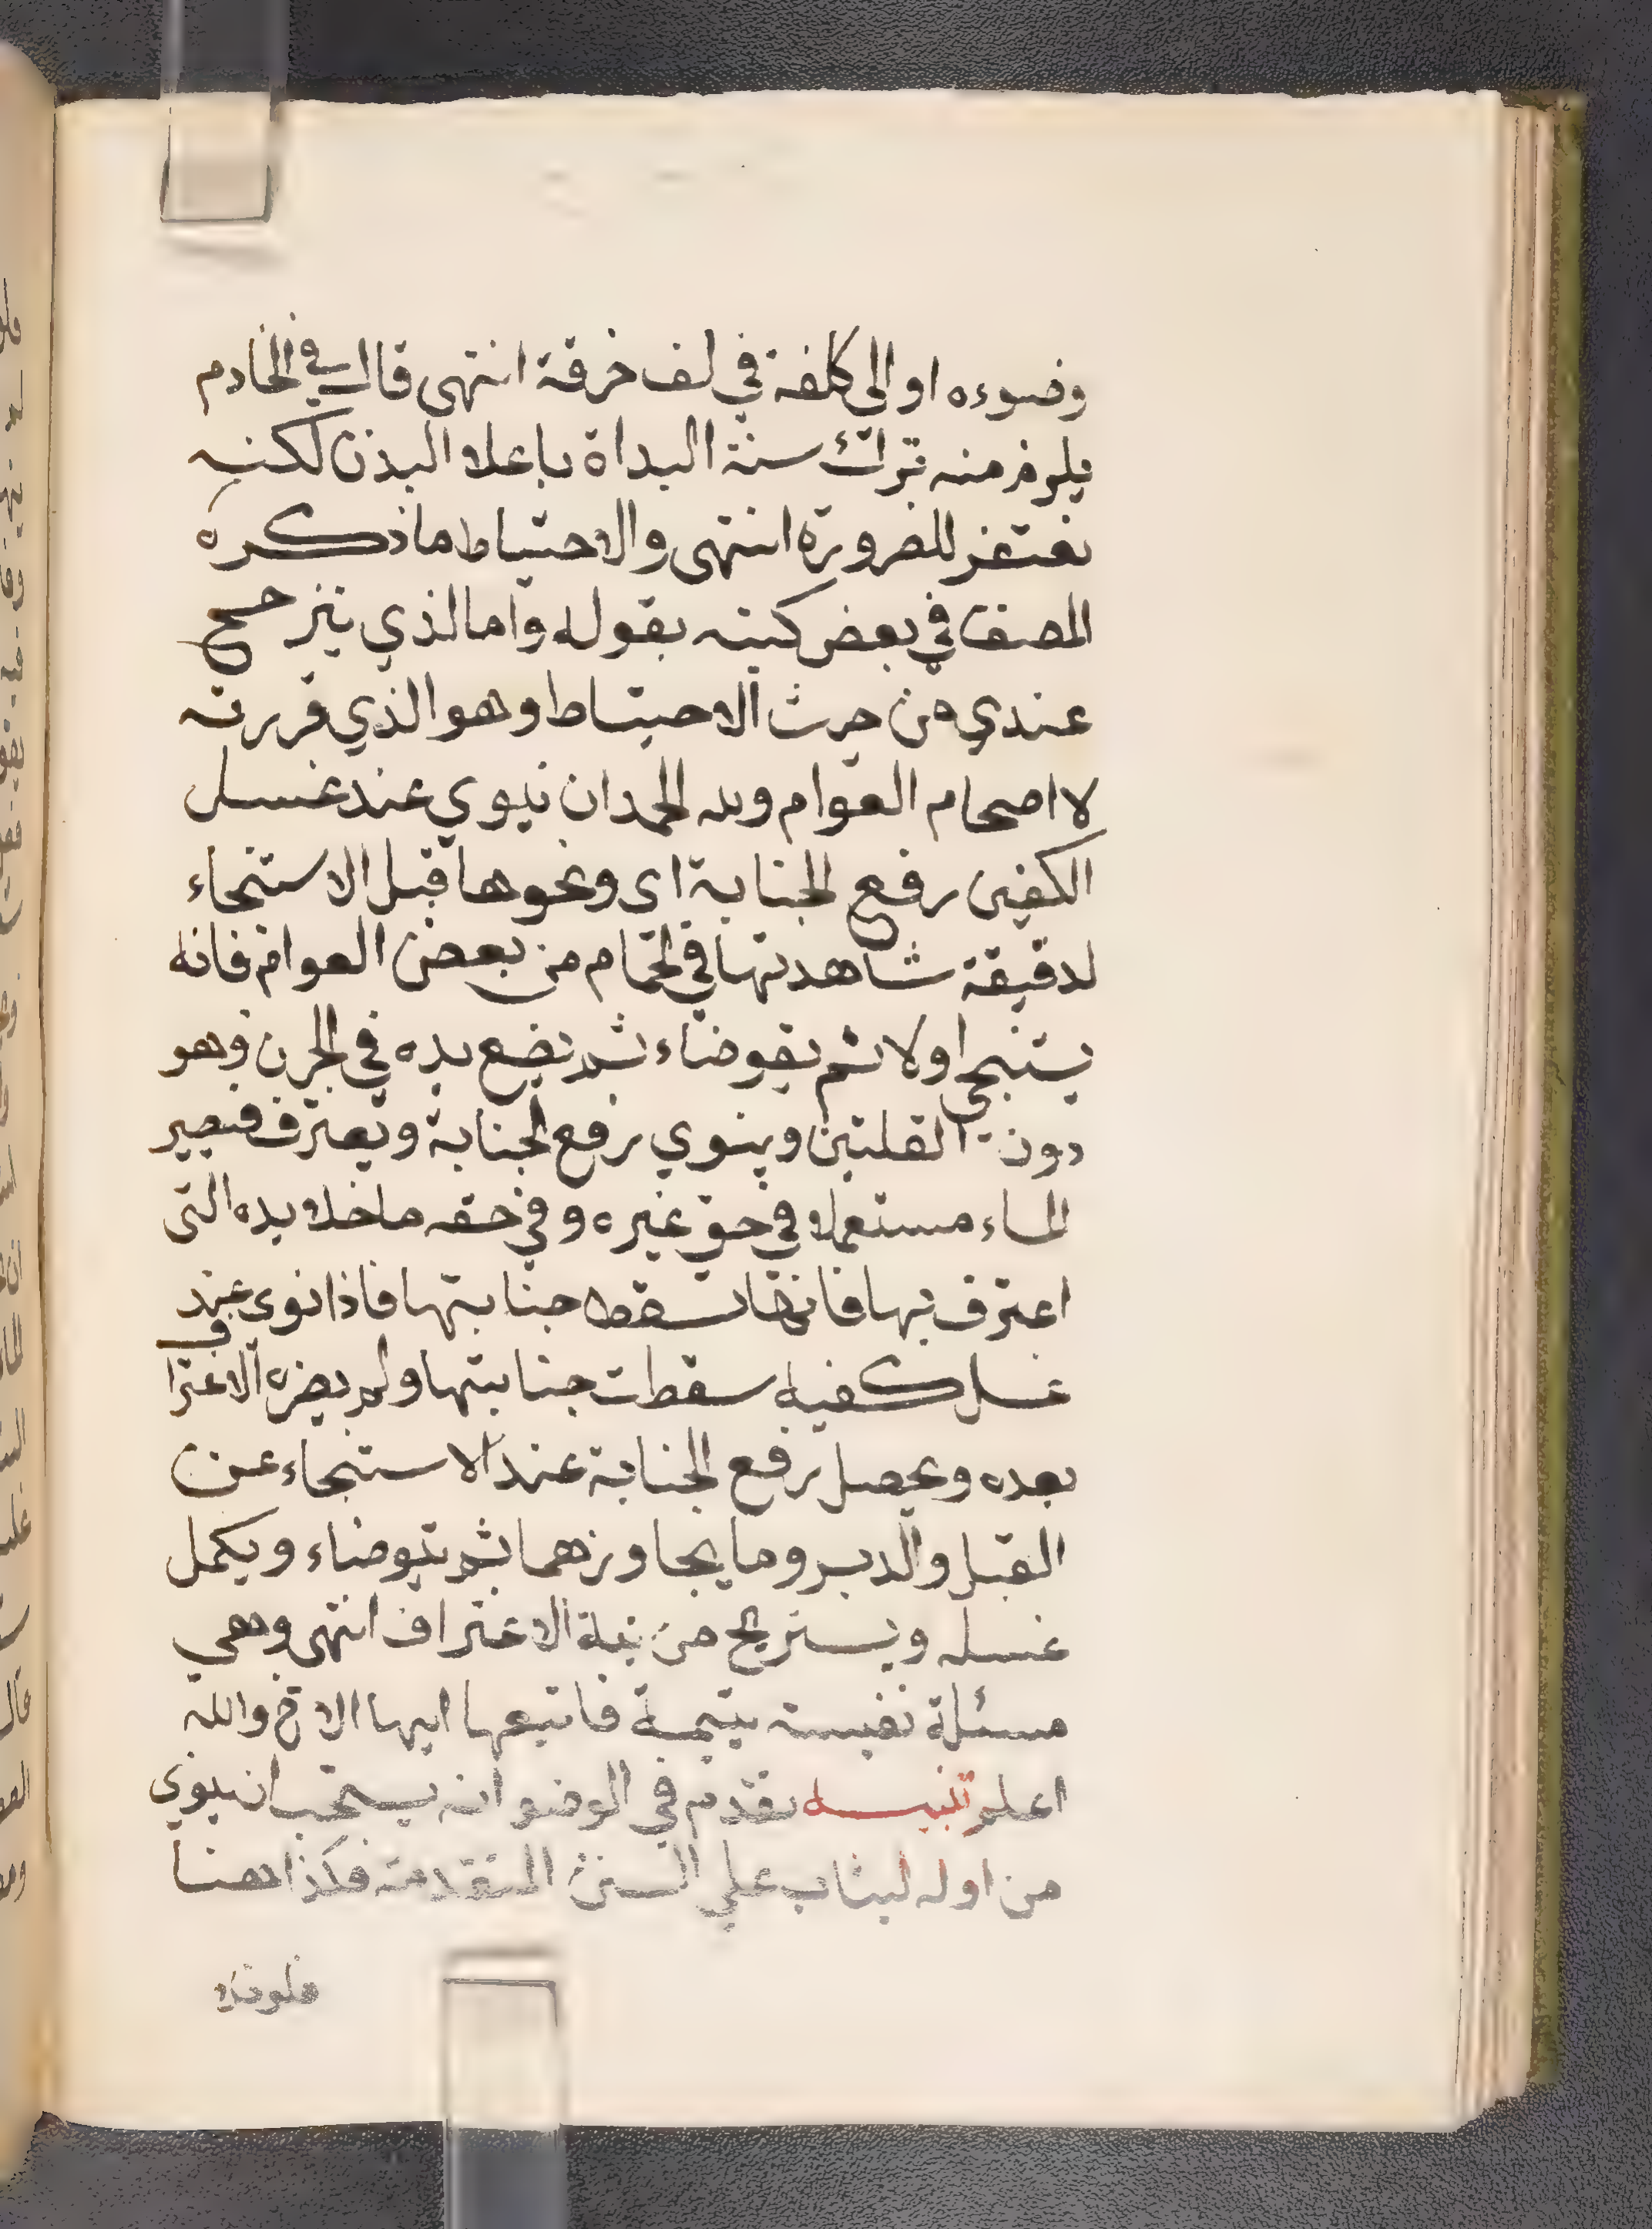 وضوءه او الى كلفة في لف خرقة انتهى قال في الخادم
يلزم منه ترك سنة البداة باعلا البدن لكنه
يغتفر للضرورة انتهى والاحتياط ما ذكره
المصنف في بعض كتبه بقوله واما الذي يترجح
عندي من حيث الاحتياط وهو الذي قررته
لاصحام العوام ولله الحمد ان ينوي عند غسل
الكفين رفع الجنابة اى ونحوها قبل الاستنجاء
لدقيقة شاهدتها في الحمام من بعض العوام فانه
يستنجي اولا ثم يتوضاء ثم يضع يده في الجرن وهو
دون القلتين وينوي رفع الجنابة ويغترف فيصير
الماء مستعملا في حق غيره وفي حقه ما خلا يده التى
اغترف بها فانها تسقط جنابتها فاذا نوى عند
غسل كفيه سقطت جنابتها ولم يضره الاغتراف
بعده ويحصل رفع الجنابة عند الاستنجاء عن
القبل والدبر وما يجاورهما ثم يتوضاء ويكمل
غسله ويستريح من نية الاغتراف انتهى وهي
مسئلة نفيسة يتيمة فاتبعها ايها الاخ والله
اعلم تنبيه تقدم في الوضو انه يستحب ان ينوي
من اوله ليثاب علي السنن المتقدمة فكذا هنا